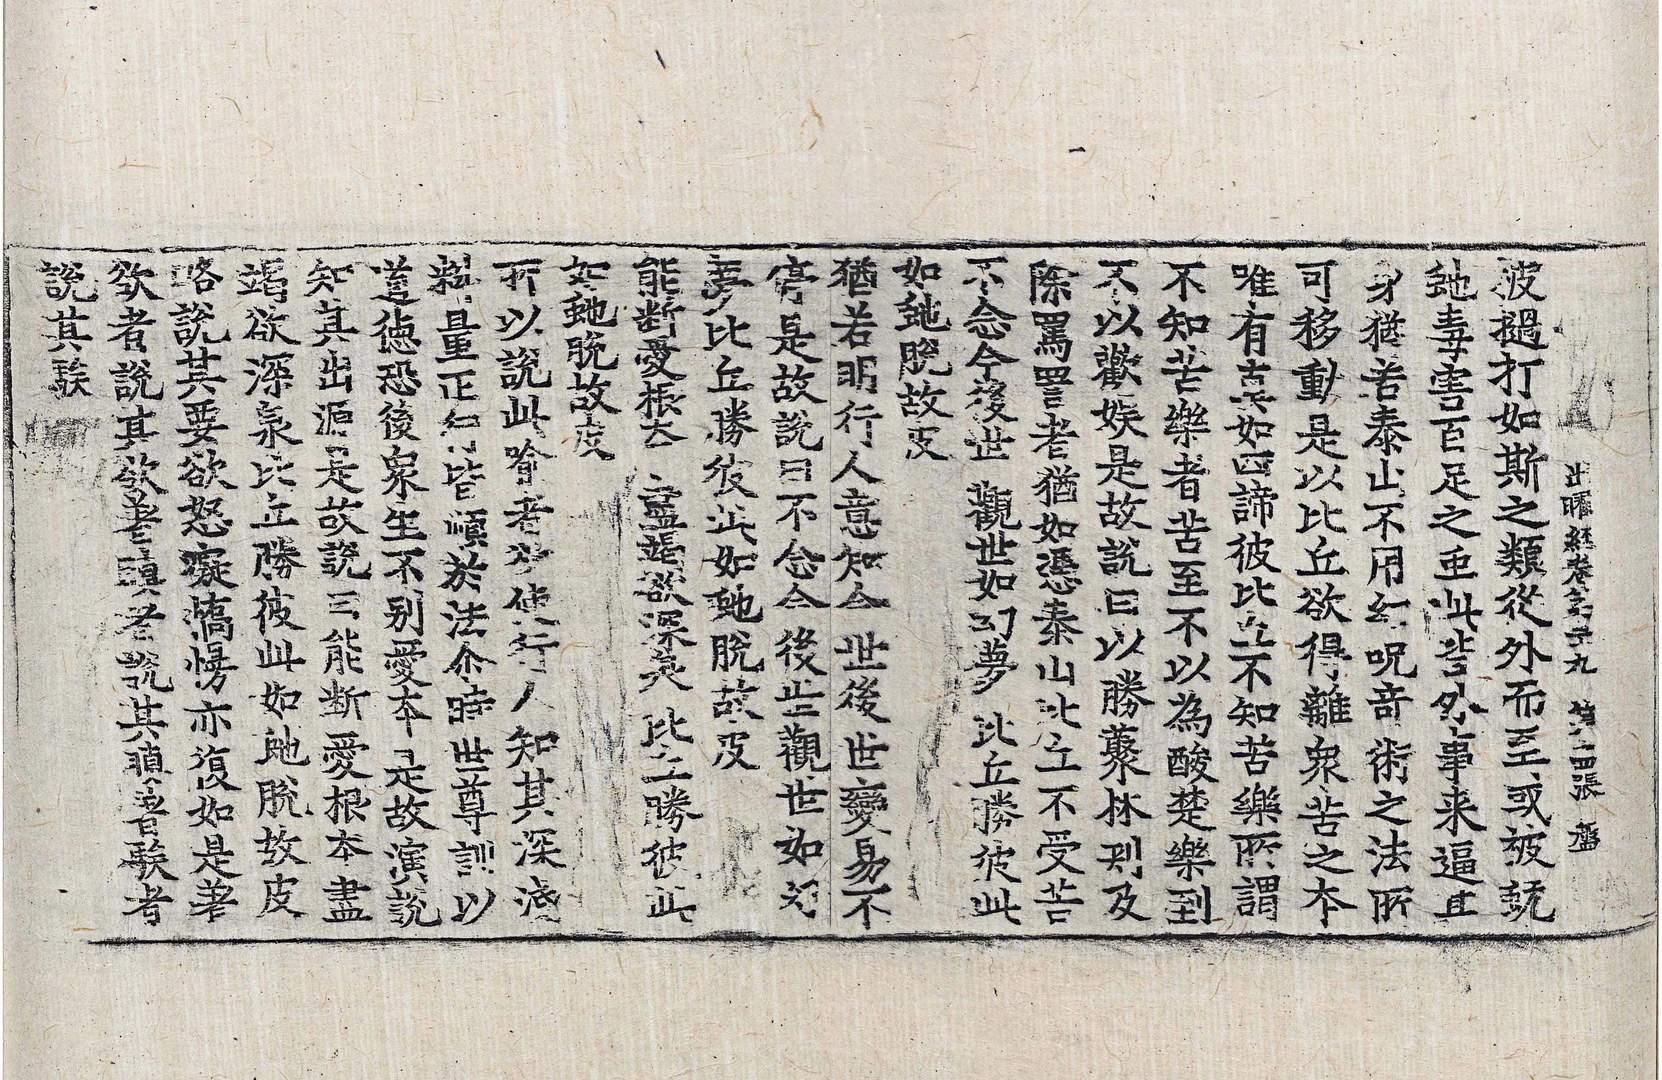 出曜經卷第二十九 第 張 盤
波撾打如斯之類從外而至或被蚖
虵毒害百足之虫此皆外事来逼其
身猶若泰山不用幻呪奇術之法所
可移動是以比丘欲得離衆苦之本
唯有真如四諦彼比丘不知苦樂所謂
不知苦樂者苦至不以為酸楚樂到
不以歡娛是故說曰以勝藂林刺及
除罵詈者猶如憑泰山比丘不受苦
不念今後世 觀世如幻夢 比丘勝彼此
如虵脫故皮
猶若明行人意知今世後世變易不
停是故說曰不念今後世觀世如幻
夢比丘勝彼此如虵脫故皮
能斷愛根本 盡竭欲深泉 比丘勝彼此
如虵脫故皮
所以說此喻者欲使行人知其深淺
斟量正行皆順於法爾時世尊訓以
道德恐後衆生不别愛本是故演說
知其出源是故說曰能斷愛根本盡
竭欲深泉比丘勝彼此如虵脫故皮
略說其要欲怒癡憍慢亦復如是著
欲者說其欲著瞋者說其瞋著騃者
說其騃